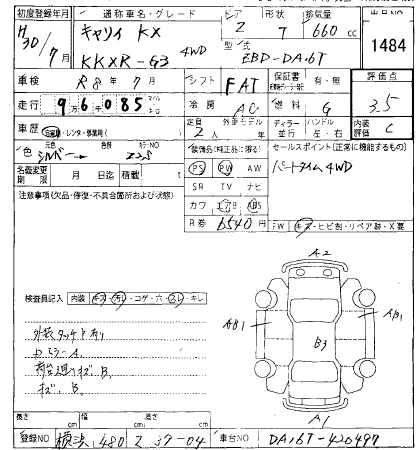 初度登録年月 通称車名・グレード ドア 形状 排気量 出品NO
H30/7月 キャリイ KX 2 T 660 cc 1484
KKXR-G3 4WD 型式 EBD-DA16T
車検 R8年7月 シフト FAT 保証書 有・無 評価点
走行 96085 冷房 AC 燃料 G 3.5
車歴 自家用・レンタ・事業用( ) 定員 2人 外装モデル ディーラー 並行 ハンドル 左・右 内装 C
色 元色 シルバー 色替 カラーNO Z2S 装備品(純正品に限る) セールスポイント(正常に機能するもの)
名義変更期限 月 日迄 積載 t PS PW AW パートタイム4WD
注意事項(欠品・修復・不具合箇所および状態) SR TV ナビ
カワ エアB ABS
R券 6540円 FW キズ・ヒビ制・リペア跡・X要
A2
検査員記入 内装 キズ・汚レ・コゲ・穴・スレ・キレ
AB1 AB1
外装タッチ有り
B3
ミラーA、
荷台廻りキズ、B、
キズ、B、
長さ cm 幅 cm 高さ cm A1
登録NO 横浜 480 Z 37-04 車台NO DA16T-420497